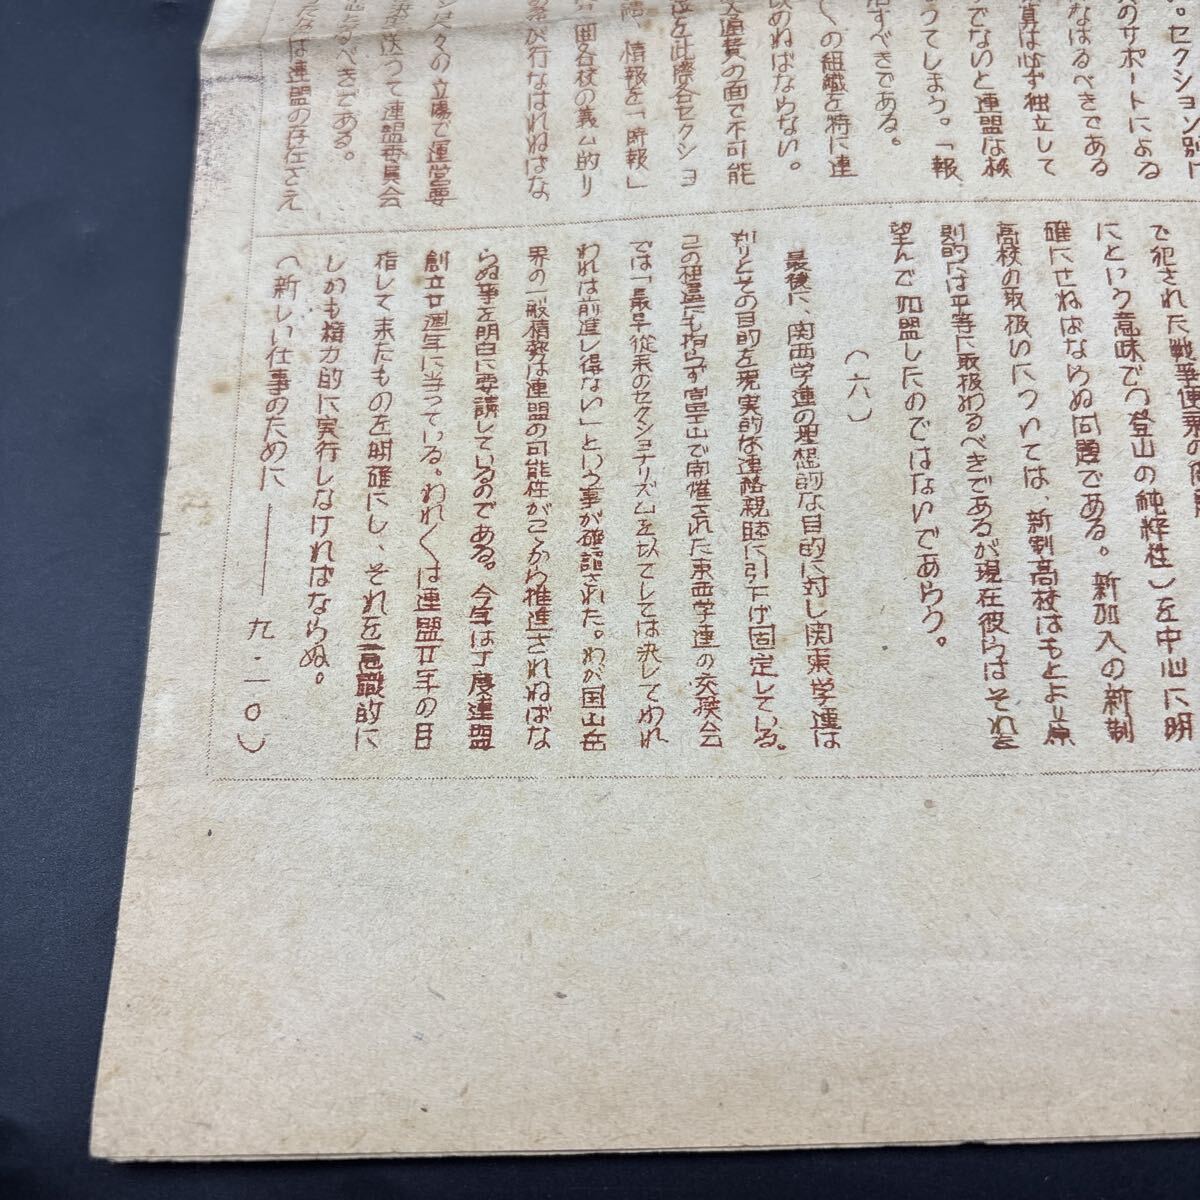 。セクション別に
のサポートによる
なはるべきである
算は必ず独立して
でないと連盟は核
つてしまう。「報
活すべきである。
くの組織を特に連
改めねばならない。
交通費の面で不可能
を此際各セクショ
情報を「時報」
囲各校の義ム的り
が行なはれねばな
の立場で運営要
送つて連盟委員会
るべきである。
は連盟の存在さえ
で犯された戦争便乗の
にという意味での登山の純粋性)を中心に明
確にせねばならぬ問題である。新加入の新制
高校の取扱いについては、新制高校はもとより原
則的には平等に取扱わるべきであるが現在彼らはそれを
望んで加盟したのではないであらう。
(六)
最後に、関西学連の理想的な目的に対し関東学連は
判りとその目的を現実的な連絡親睦に引下げ固定している。
この相違にも拘らず富士山で開催された東西学連の交換会
では「最早従来のセクショナリズムを以てしては決してわれ
われは前進し得ない」という事が確認された。わが国山岳
界の一般情勢は連盟の可能性がこゝから推進されねばな
らぬ事を明白に要請しているのである。今年は丁度連盟
創立廿週年に当っている。われ〳〵は連盟廿年の目
指して来たものを明確にし、それを意識的に
しかも精力的に実行しなければならぬ。
(新しい仕事のために――九・二〇)